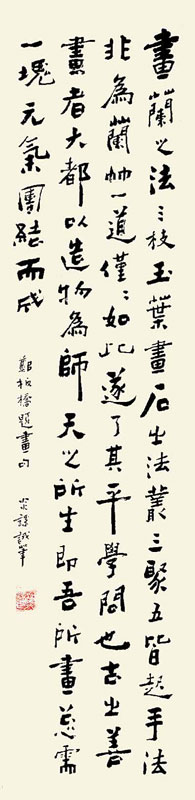 畫蘭之法三枝五葉畫石之法叢三聚五皆起手法
非為蘭竹一道僅〻如此遂了其平學問也古之善
畫者大都以造物為師天之所生即吾所畫總需
一塊元氣團結而成
鄭板橋題畫句
誠筆